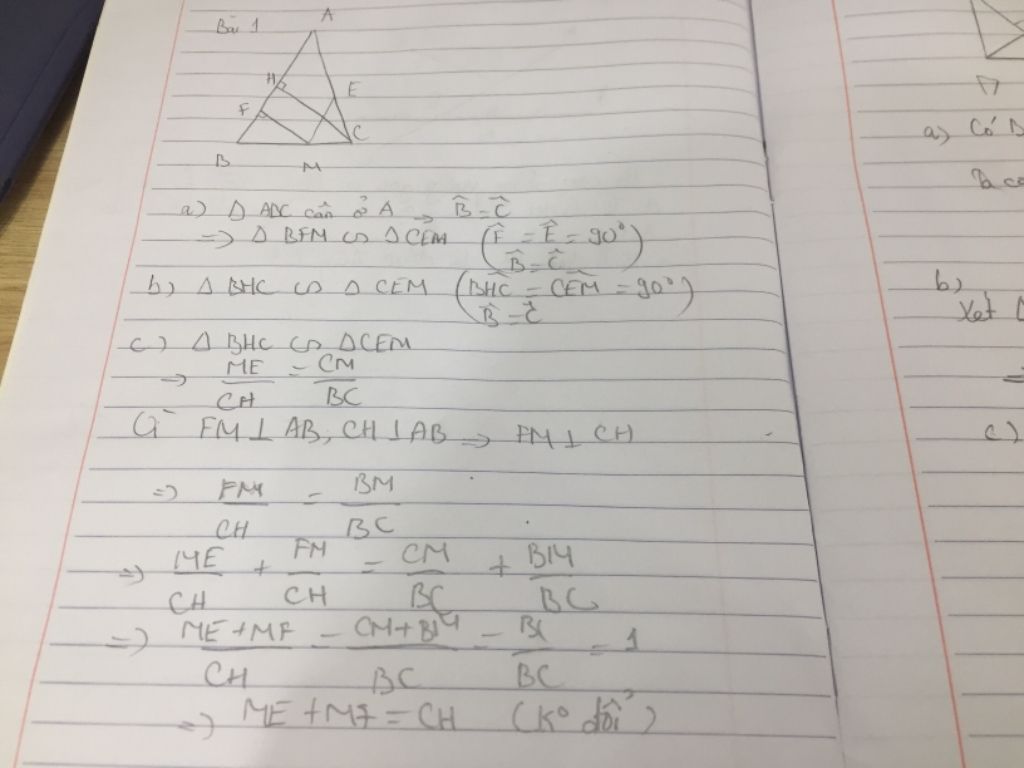 Bài 1
A
H
E
F
C
B
M
a) Δ ABC cân ở A → B̂ = Ĉ
=> Δ BFM ∽ Δ CEM (F̂ = Ê = 90°
B̂ = Ĉ)
b) Δ BHC ∽ Δ CEM (BHC = CEM = 90°)
B̂ = Ĉ
c) Δ BHC ∽ Δ CEM
=> ME/CH = CM/BC
FM ⊥ AB, CH ⊥ AB => FM ⊥ CH
=> FM/CH = BM/BC
=> ME/CH + FM/CH = CM/BC + BM/BC
=> ME + MF/CH = CM + BM/BC = BC/BC = 1
=> ME + MF = CH (Kº đổi)
a) Có
b)
Xét Δ
c)